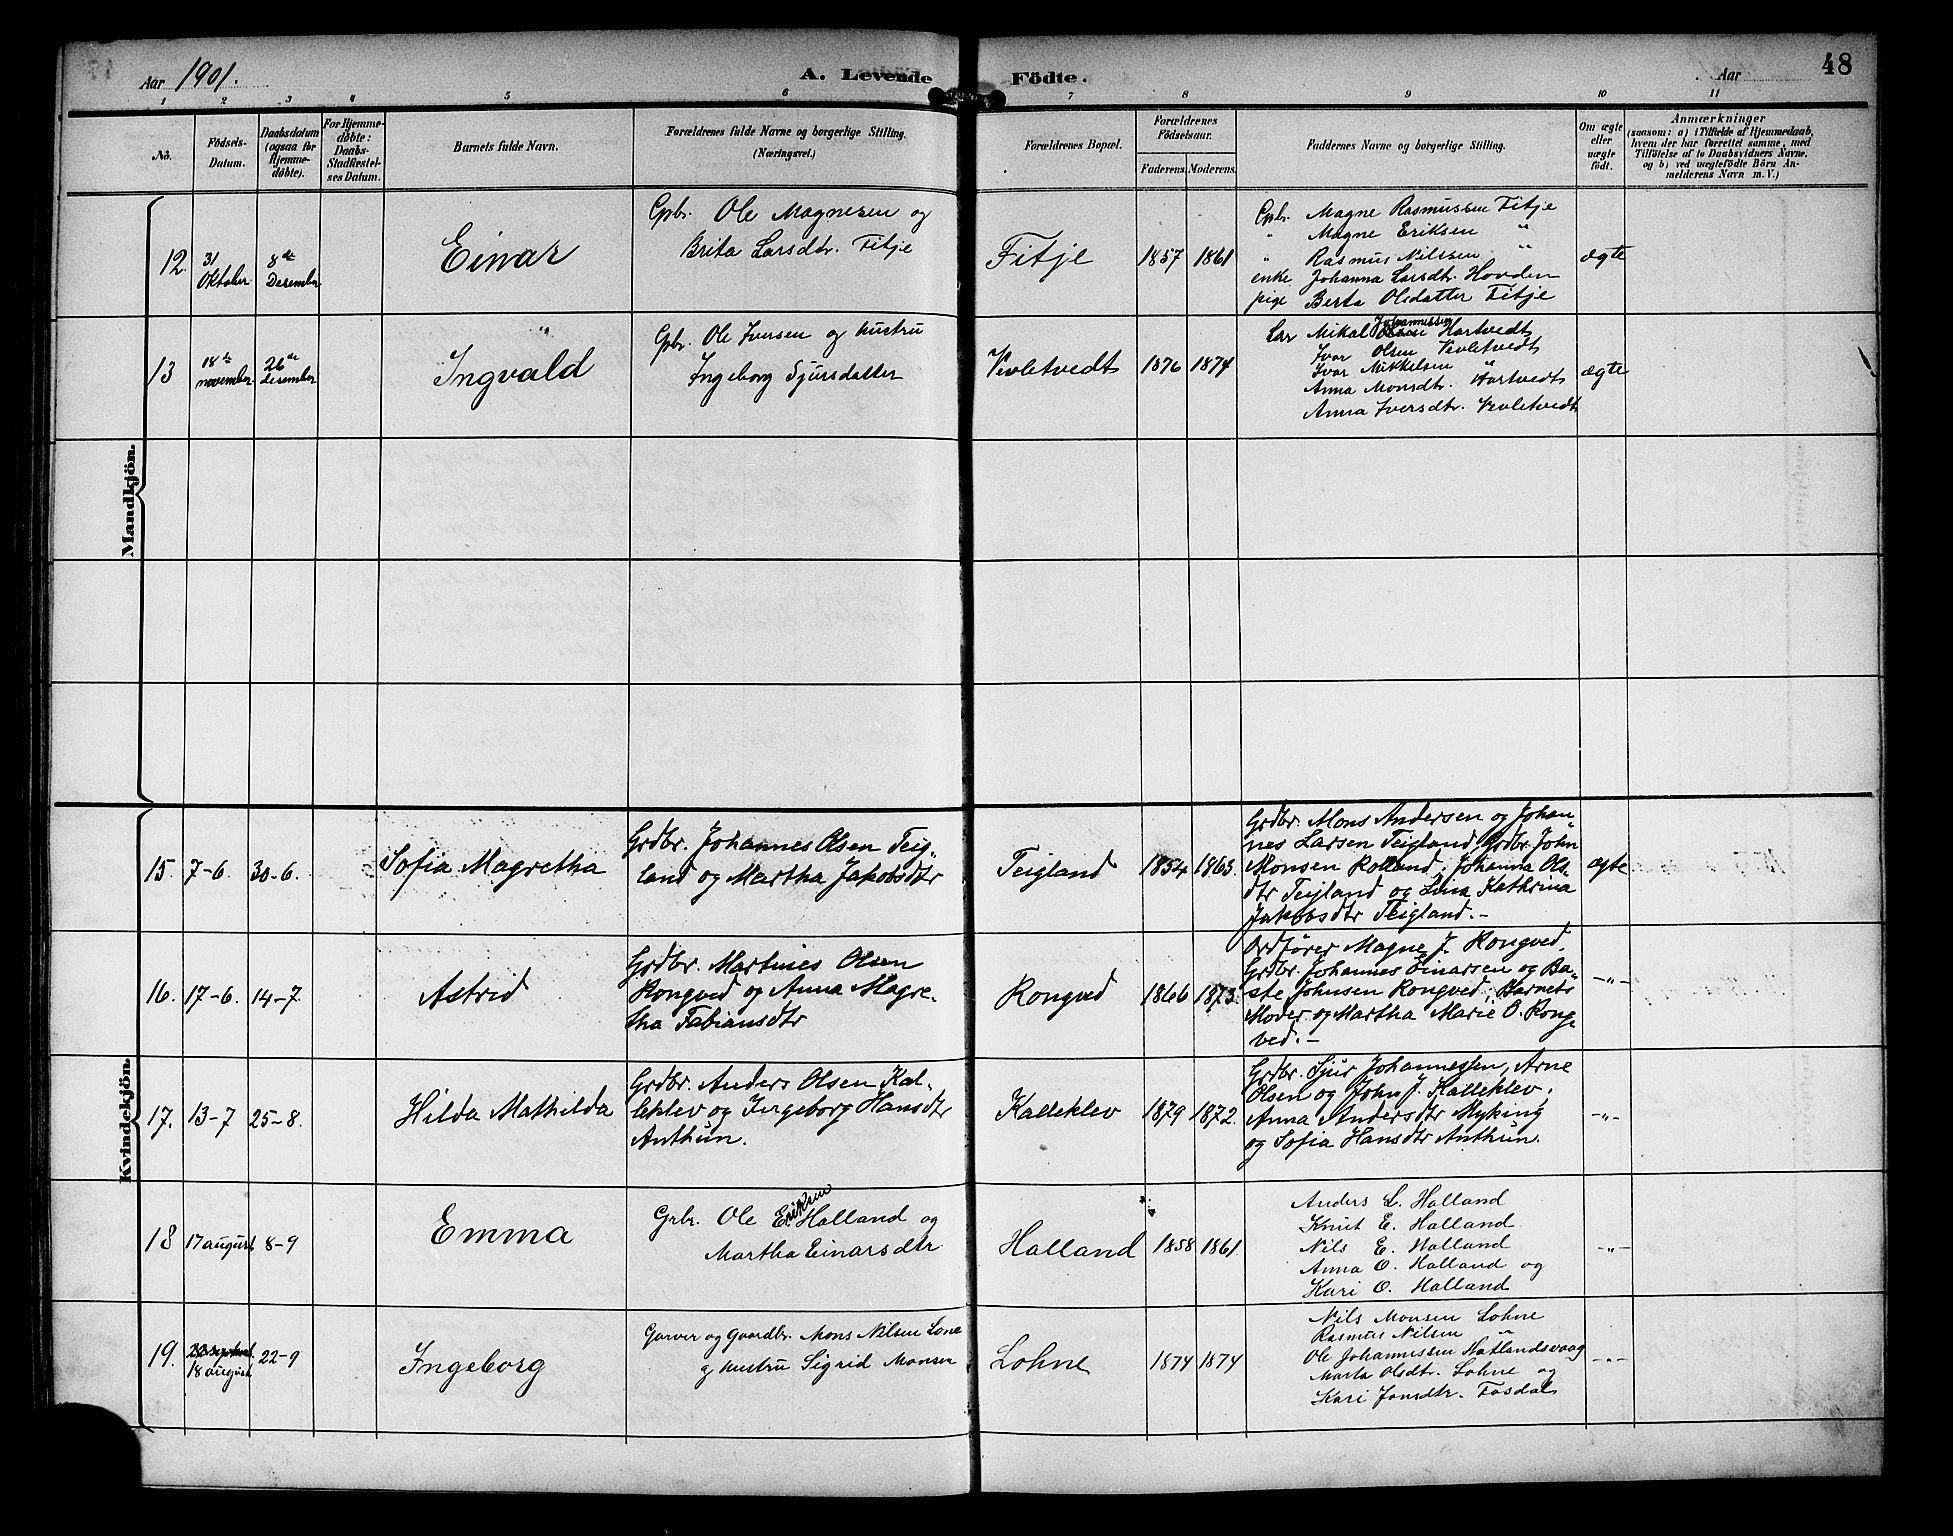 Aar 1901.
A. Levende Födte.
Aar
48
1 2 3 4 5 6 7 8 9 10 11
No.
Födsels-
Datum.
Daabsdatum
(ogsaa for
Hjemme-
döbte).
For Hjemme-
döbte:
Daabs-
Stadfæstel-
ses Datum.
Barnets fulde Navn.
Forældrenes fulde Navne og borgerlige Stilling.
(Næringsvei.)
Forældrenes Bopæl.
Forældrenes
Födselsaar.
Faderens.
Moderens.
Faddernes Navne og borgerlige Stilling.
Om ægte
eller
uægte
födt.
Anmærkninger
(saasom: a) i Tilfælde af Hjemmedaab,
hvem der har forrettet samme, med
Tilföielse af to Daabsvidners Navne,
og b) ved uægtefödte Börn An-
melderens Navn m. V.)
Mandkjön.
12.
31
Oktober
8de
Desember
Einar
Gpbr. Ole Magnesen og
Brita Larsdtr. Fitje
Fitje
1857
1861
Gpbr. Magne Rasmussen Fitje
" Magne Eriksen "
" Rasmus Nilssen "
enke Johanna Larsdtr. Hovden
pige Berta Olsdatter Fitje
ægte
13
18de
november
26de
desember
Ingvald
Gpbr. Ole Iversen og hustru
Ingeborg Sjursdatter
Vevletvedt
1876
1874
Johannessen
Mikal Hartvedt
Ivar Olsen Vevletvedt
Ivar Mikkelsen "
Anna Monsdtr. Hartvedt
Anna Iversdtr. Vevletvedt
ægte
Kvindekjön.
15.
7-6.
30-6.
Sofia Magretha
Grdbr. Johannes Olsen Teig-
land og Martha Jakobsdtr
Teigland
1854
1863.
Grdbr. Mons Andersen og Johan-
nes Larsen Teigland, Grdbr. John
Monsen Rolland, Johanna Ols-
dtr Teigland og Lina Kathrina
Jakobsdtr Teigland.-
ægte
16.
17-6.
14-7.
Astrid
Grdbr. Martines Olsen
Rongved og Anna Magre-
tha Fabiansdtr
Rongved
1866
1873.
Ordfører Magne J. Rongved,
Grdbr. Johannes Einarsen og Ba-
ste Johnsen Rongved, Barnets
Moder og Martha Marie O. Rong-
ved.-
-"-
17.
13-7
25-8.
Hilda Mathilda
Grdbr. Anders Olsen Kal-
leklev og Ingeborg Hansdtr
Anthun.
Kalleklev
1879
1872.
Grdbr. Sjur Johannessen, Arne
Olsen og John J. Kalleklev,
Anna Andersdtr Myking
og Sofia Hansdtr Anthun.
-"-
18
17 august
8-9
Emma
Eriksen
Grbr. Ole E. Halland og
Martha Einarsdtr
Halland
1858
1861.
Anders L. Halland
Knut E. Halland
Nils E. Halland
Anna O. Halland og
Kari O. Halland
-"-
19.
18 august
22-9
Ingeborg
Garver og Gaardbr. Mons Nilsen Lone
og hustru Sigrid Monsen
Lohne
1874
1874
Nils Monsen Lohne
Rasmus Nilsen "
Ole Johannessen Natlandsvaag
Marta Olsdtr. Lohne og
Kari Jonsdtr. Fosdal
-"-